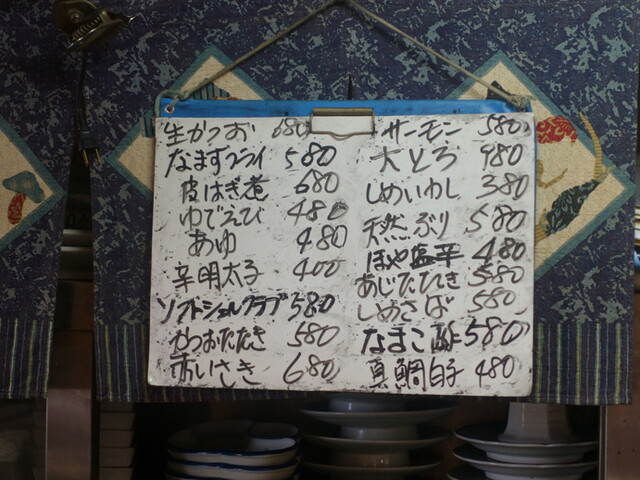 生かつお 680
なまずフライ 580
皮はぎ造 680
ゆでえび 480
あゆ 480
辛明太子 400
ソフトシェルクラブ 580
かつおたたき 580
赤いさき 680
サーモン 580
大とろ 980
しめいわし 380
天然ぶり 580
ほや塩辛 480
あじたたき 580
しめさば 580
なまこ酢 580
真鯛白子 480